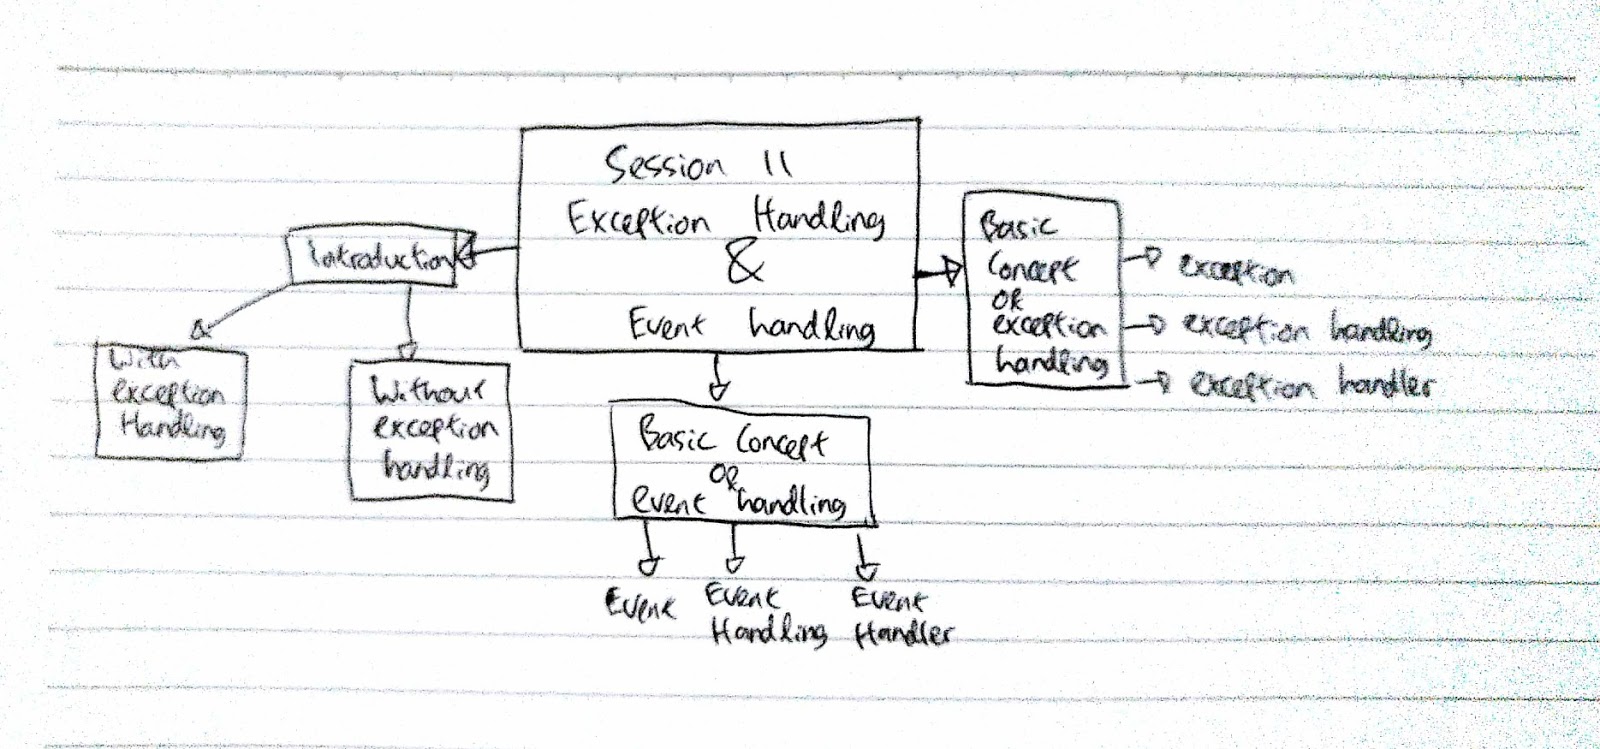 Session 11
Exception Handling
&
Event handling
Introduction
With
exception
Handling
Without
exception
handling
Basic Concept
OR
event handling
Event
Event
Handling
Event
Handler
Basic
Concept
OR
exception
handling
exception
exception handling
exception handler